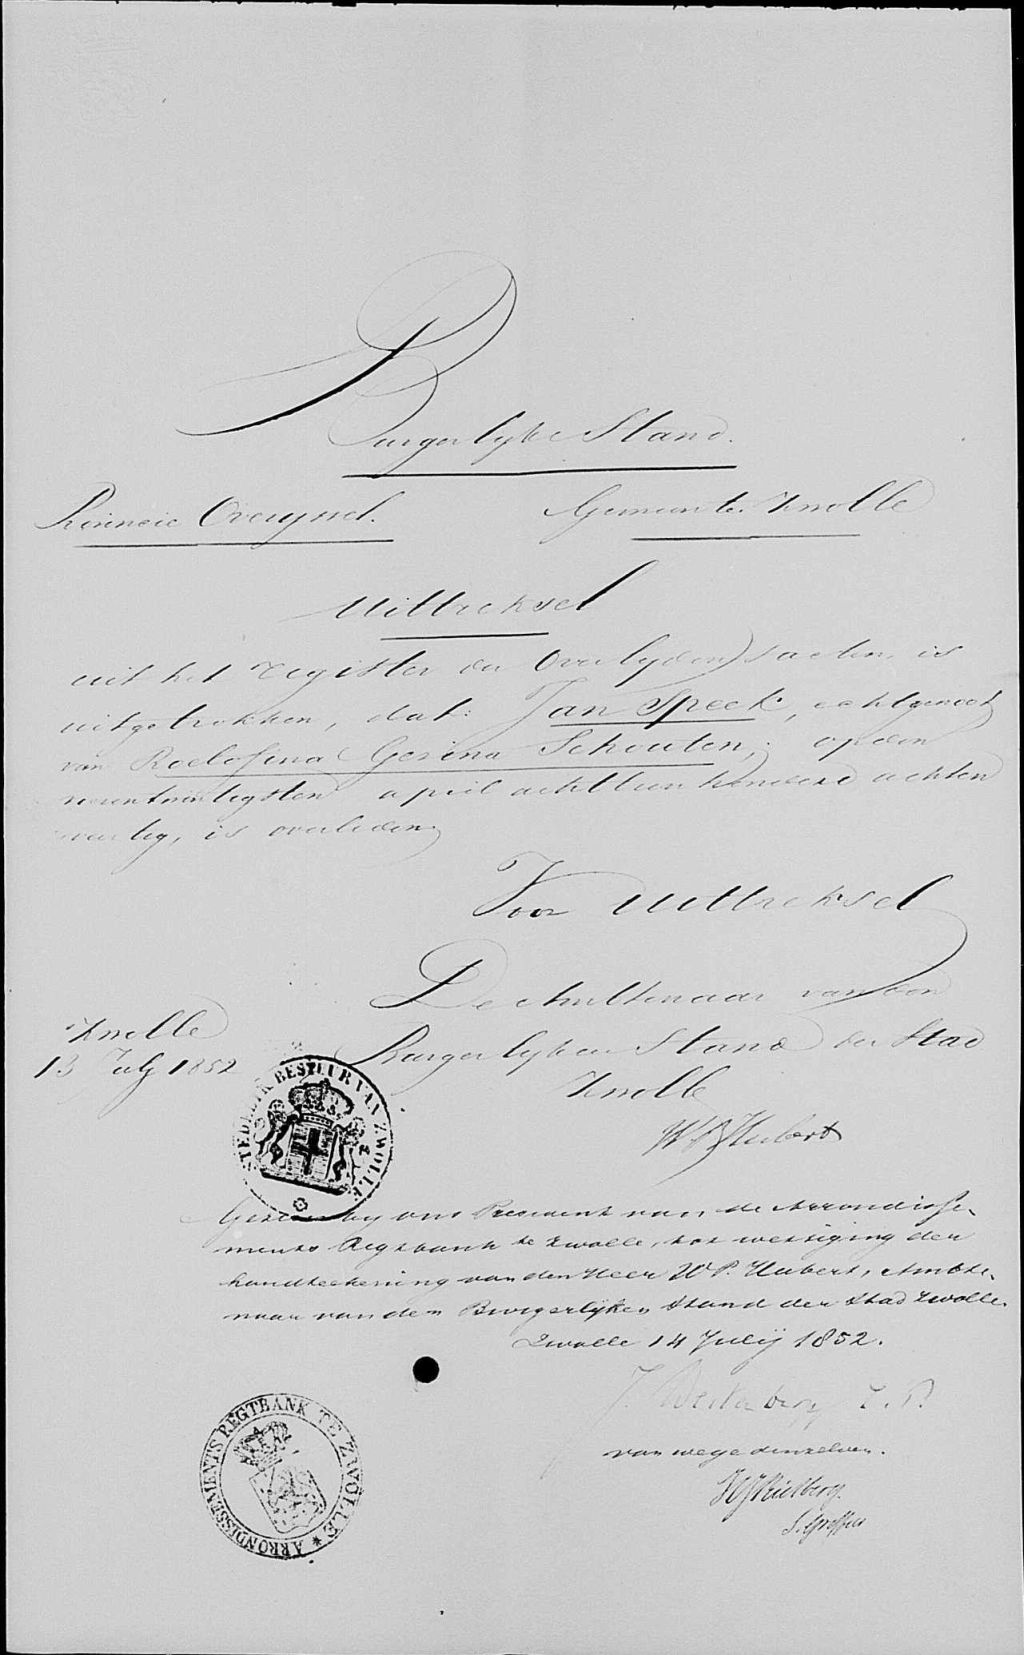 Burgerlyke Stand.
Provincie Overyssel. Gemeente Zwolle
Uittreksel
uit het register der Overlyden's acten, is
uitgetrokken, dat: Jan Speek, echtgenoot
van Roelofina Gesina Schouten, op den
april achttien honderd achten
veertig, is overleden,
Voor Uittreksel
De Ambtenaar van den
Burgerlyken Stand der Stad
Zwolle
Zwolle
13 July 1852
STEDELYK BESTUUR VAN ZWOLLE
W P Hubert
Gezien by ons President van de Arrondisse-
ments Regtbank te Zwolle, tot wettiging der
handteekening van den Heer W P. Hubert, Ambte-
naar van den Burgerlijken Stand der Stad Zwolle.
Zwolle 14 Julij 1852.
van wege denzelven.
ARRONDISSEMENTS REGTBANK TE ZWOLLE